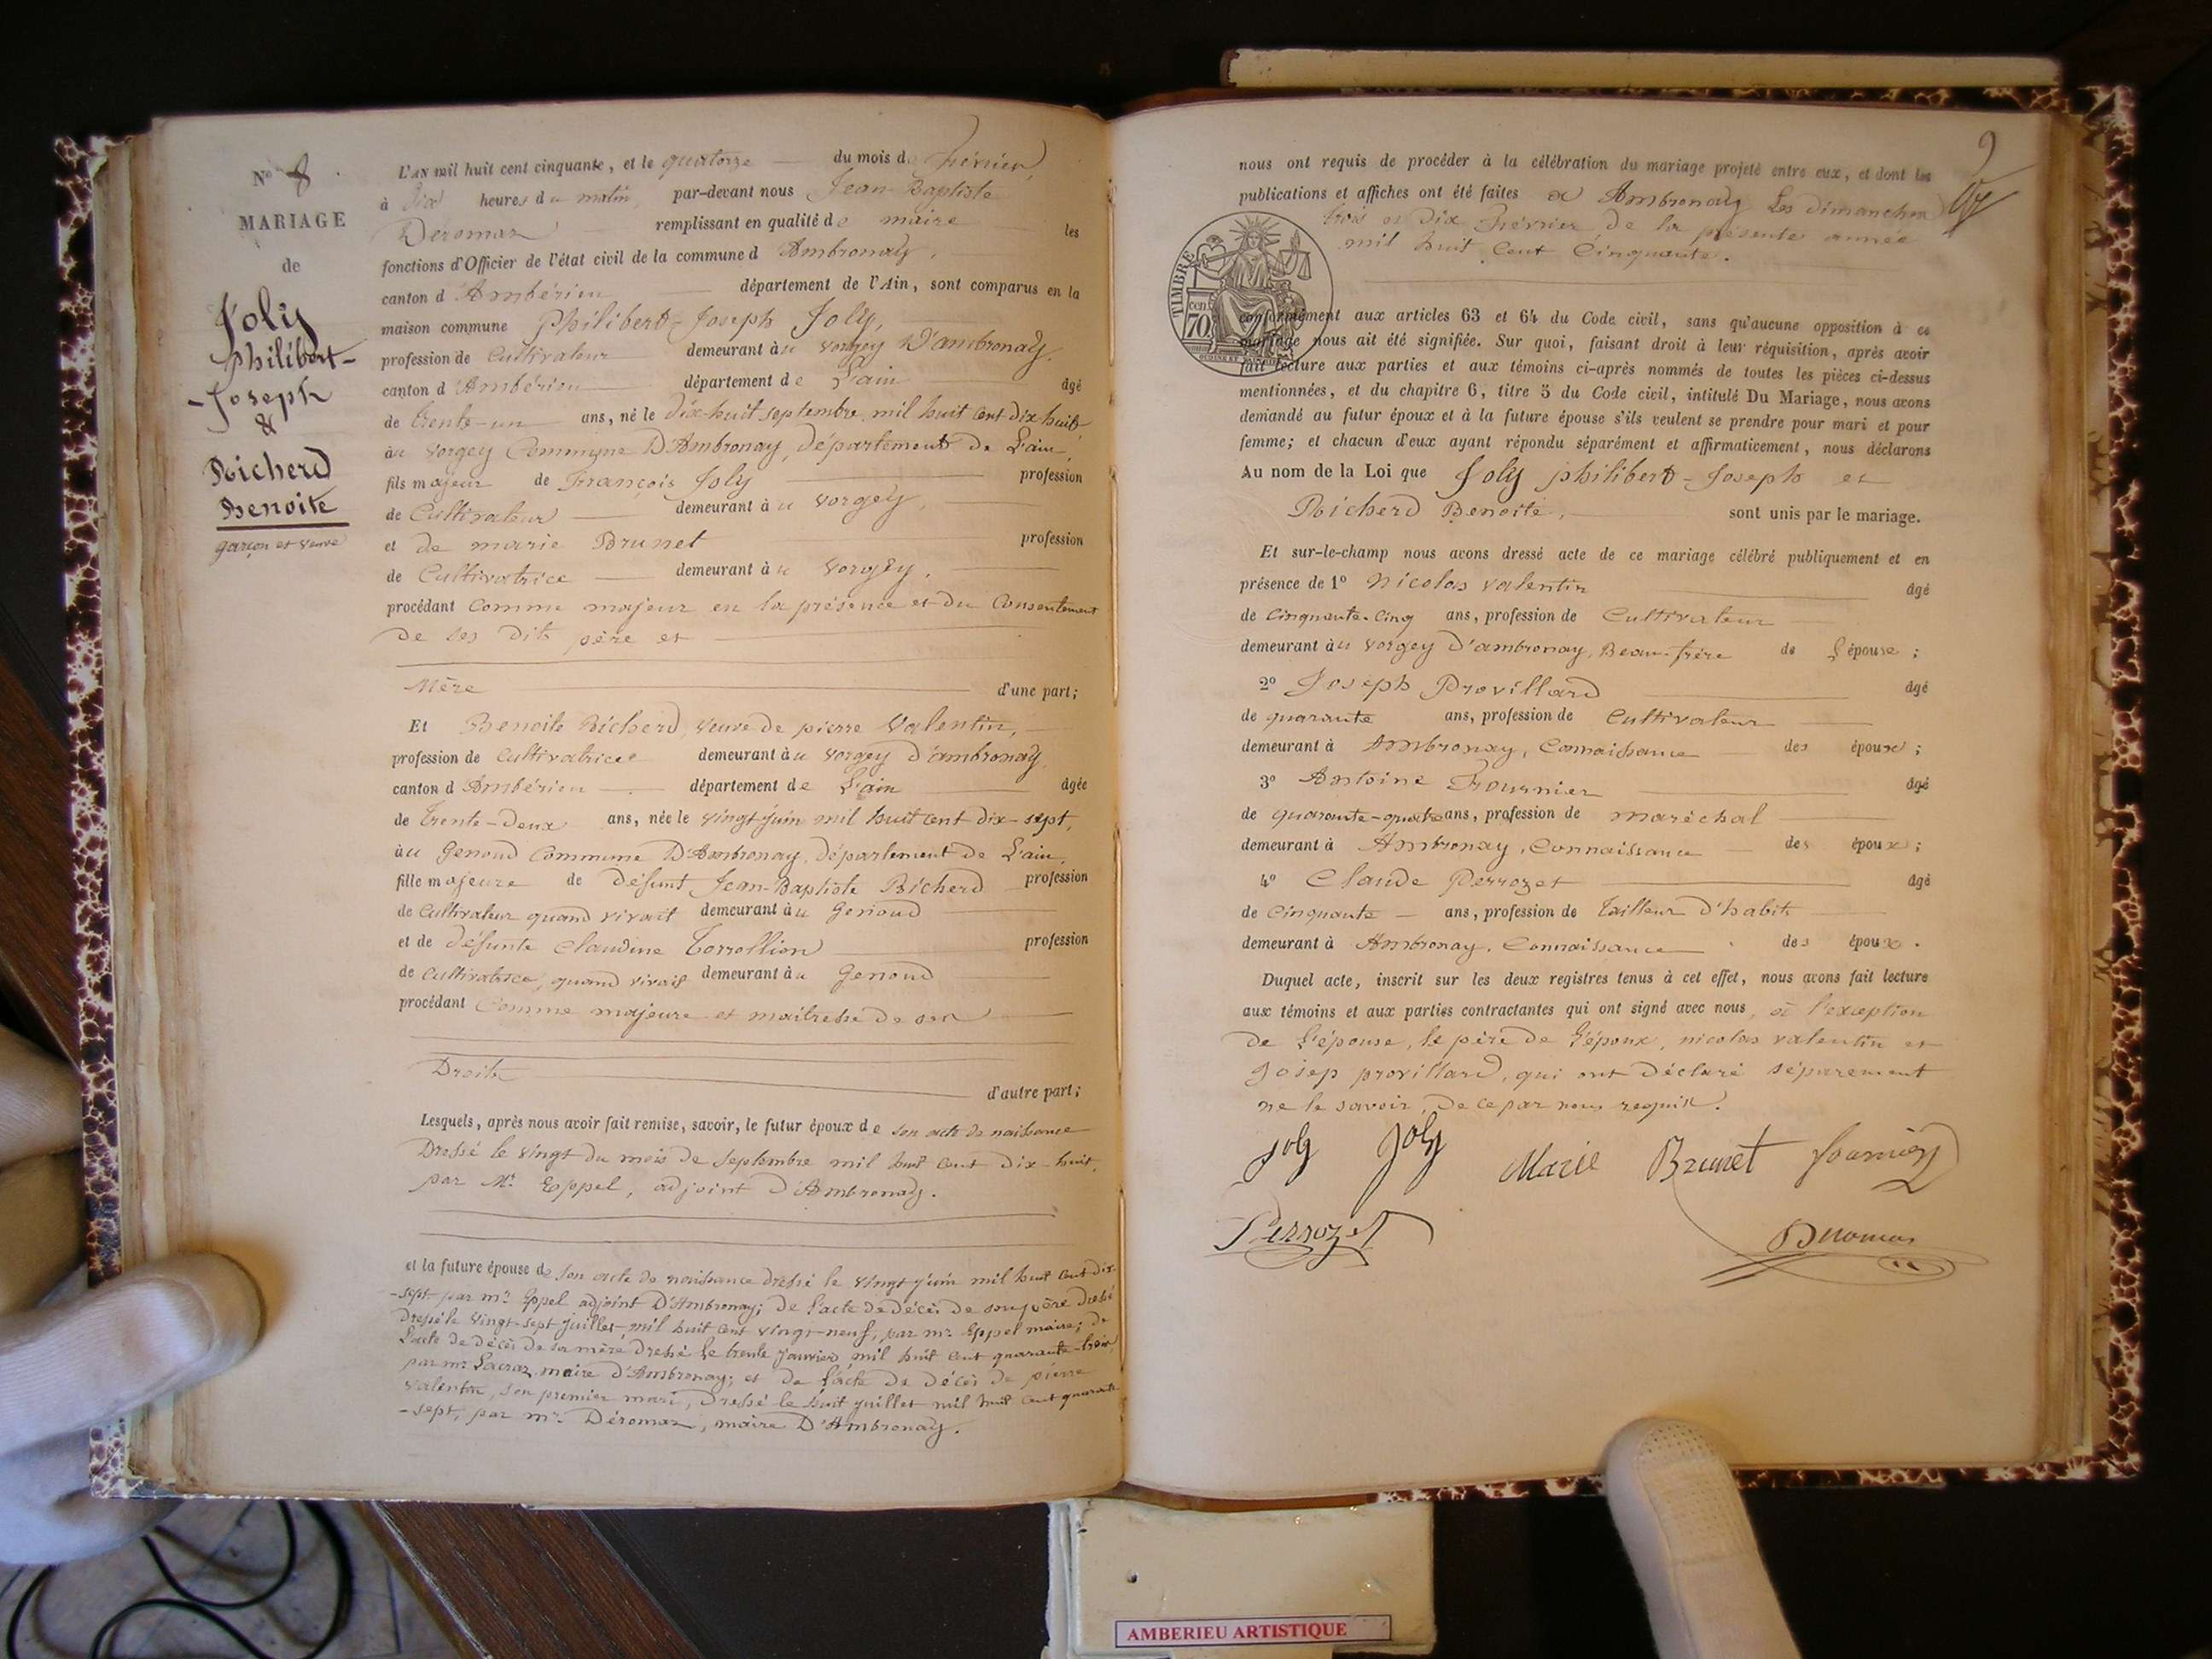 N° 8
MARIAGE
de
Joly
philibert-
-Joseph
&
Richerd
Benoite
garçon et veuve
L'AN mil huit cent cinquante, et le quatorze du mois de février
à Dix heures du matin, par-devant nous Jean-Baptiste
Deromas remplissant en qualité de maire les
fonctions d'Officier de l'état civil de la commune d'Ambronay,
canton d'Ambérieu département de l'Ain, sont comparus en la
maison commune Philibert-Joseph Joly,
profession de Cultivateur demeurant à u vorgey D'ambronay,
canton d'Ambérieu département de L'ain âgé
de trente-un ans, né le dix-huit septembre mil huit cent dix-huit,
àu vorgey Commune D'Ambronay, département de L'ain,
fils majeur de François Joly profession
de Cultivateur demeurant à u vorgey,
et de marie Brunet profession
de Cultivatrice demeurant à u vorgey,
procédant comme majeur en la présence et du Consentement
de ses dits père et
Mère d'une part;
Et Benoite Richerd, veuve de pierre Valentin,
profession de Cultivatrice demeurant à u vorgey d'ambronay,
canton d'Ambérieu département de L'ain âgée
de trente-deux ans, née le vingt juin mil huit cent dix-sept,
àu Genoud Commune D'Ambronay, département de L'ain,
fille majeure de défunt Jean-Baptiste Richerd profession
de Cultivateur quand vivait demeurant à u Genoud
et de défunte Claudine Torrollion profession
de Cultivatrice, quand vivait demeurant à u Genoud
procédant Comme majeure et maitresse de ses
Droits d'autre part;
Lesquels, après nous avoir fait remise, savoir, le futur époux de son acte de naissance
Dressé le vingt du mois de septembre mil huit cent dix-huit,
par Mr. Eppel, adjoint d'Ambronay.
et la future épouse de son acte de naissance dressé le vingt juin mil huit cent dix-
-sept par mr. Eppel adjoint D'Ambronay; de l'acte de décès de son père dressé
dressé le vingt-sept juillet mil huit cent vingt-neuf, par mr. Eppel maire; de
L'acte de décès de sa mère dressé le trente janvier mil huit cent quarante-trois,
par mr. Lacroz, maire d'Ambronay; et de L'acte de décès de pierre
valentin, son premier mari, dressé le huit juillet mil huit cent quarante
-sept, par mr. Déromas, maire D'Ambronay.
9
nous ont requis de procéder à la célébration du mariage projeté entre eux, et dont les
publications et affiches ont été faites à Ambronay Les dimanches
trois et dix Février de la présente année
mil huit cent Cinquante.
TIMBRE
70 cent
conformément aux articles 63 et 64 du Code civil, sans qu'aucune opposition à ce
mariage nous ait été signifiée. Sur quoi, faisant droit à leur réquisition, après avoir
fait lecture aux parties et aux témoins ci-après nommés de toutes les pièces ci-dessus
mentionnées, et du chapitre 6, titre 5 du Code civil, intitulé Du Mariage, nous avons
demandé au futur époux et à la future épouse s'ils veulent se prendre pour mari et pour
femme; et chacun d'eux ayant répondu séparément et affirmativement, nous déclarons
Au nom de la Loi que Joly philibert-Joseph et
Richerd Benoite, sont unis par le mariage.
Et sur-le-champ nous avons dressé acte de ce mariage célébré publiquement et en
présence de 1° Nicolas valentin âgé
de Cinquante-Cinq ans, profession de Cultivateur
demeurant àu vorgey D'ambronay, Beau-frère de L'épouse;
2° Joseph Provillard âgé
de quarante ans, profession de Cultivateur
demeurant à Ambronay, Connaissance des époux;
3° Antoine Fournier âgé
de quarante-quatre ans, profession de maréchal
demeurant à Ambronay, Connaissance des époux;
4° Claude Perrozet âgé
de Cinquante ans, profession de Tailleur D'habits
demeurant à Ambronay, Connaissance des époux.
Duquel acte, inscrit sur les deux registres tenus à cet effet, nous avons fait lecture
aux témoins et aux parties contractantes qui ont signé avec nous, à l'exception
de L'épouse, le père de L'époux, nicolas valentin et
Josep provillard, qui ont déclaré séparément
ne le savoir, de ce par nous requis.
Joly Joly Marie Brunet fournier
Perrozet Deromas
AMBERIEU ARTISTIQUE